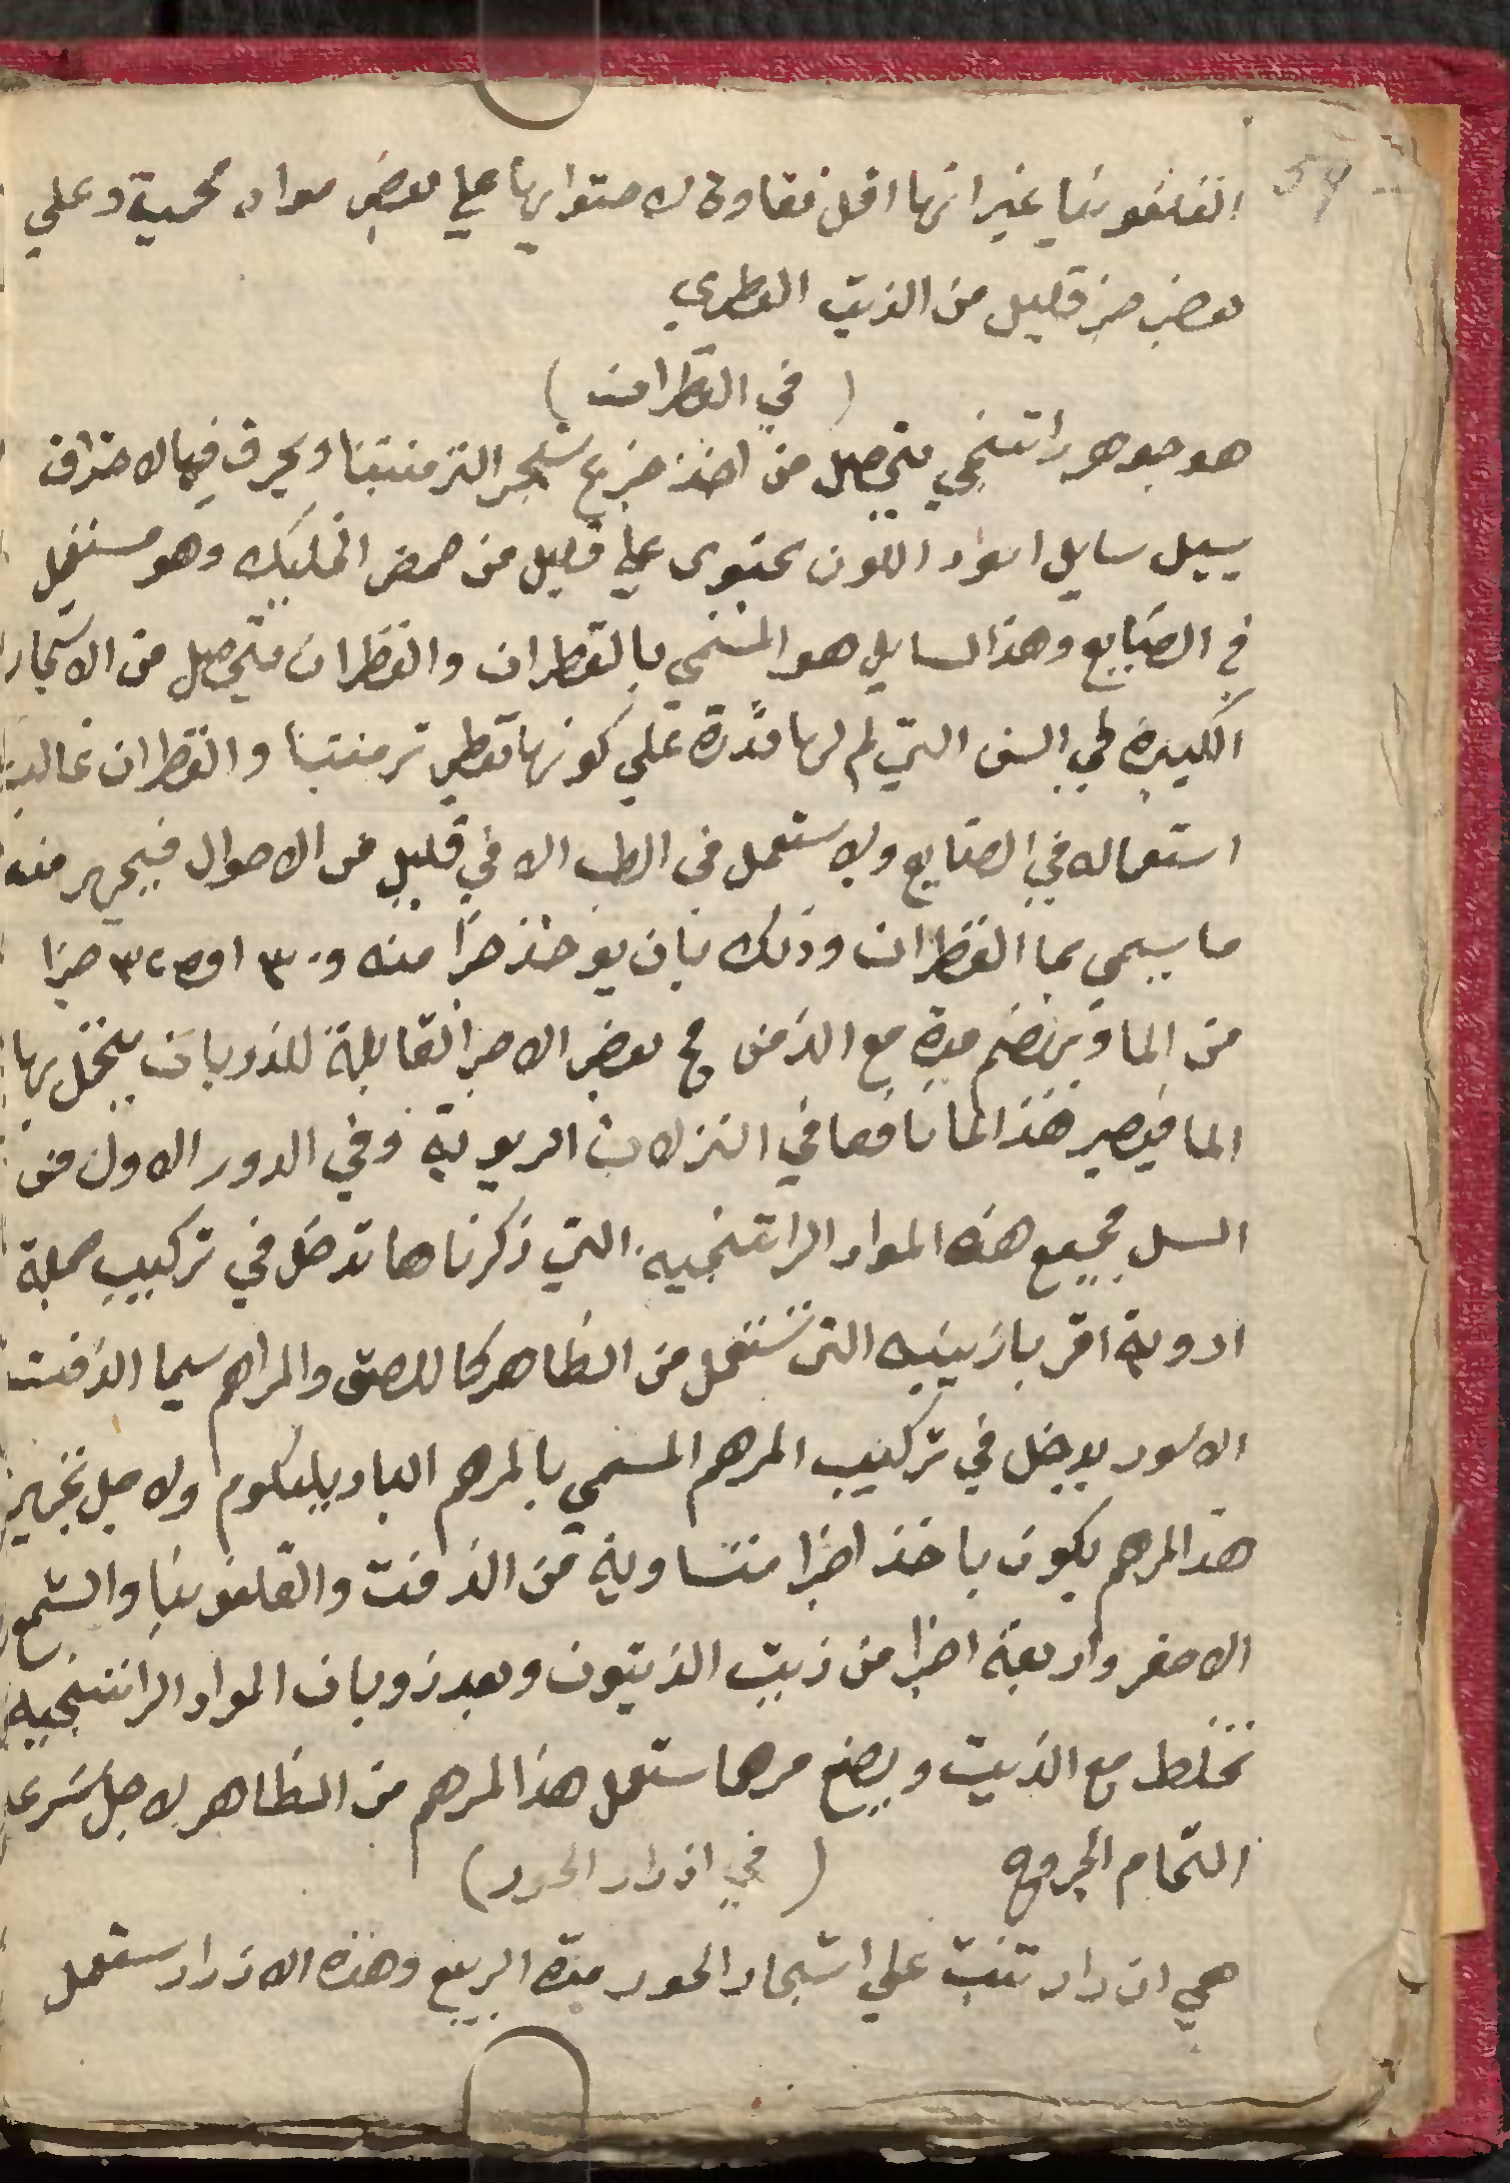 القلفونيا غير انها اقل نقاوة لاحتوايها علي بعض مواد فحمية وعلي
بعض جز قليل من الزيت العطري
( في القطران )
هو جوهر راتنجي متحصل من اخذ جزع شجر الترمنتينا ويحرق فبالاحتراق
يسيل سايل اسود اللون يحتوى علي قليل من حمض الخليك وهو مستعمل
في الصنايع وهذا السايل هو المسمي بالقطران والقطران متحصل من الاشجار
الكبيرة في السن التي لم لها قدرة علي كونها تعطي ترمنتينا والقطران غالب
استعماله في الصنايع ولا يستعمل في الطب الا في قليل من الاحوال فيجهر منه
ما يسمي بما القطران وذلك بان يوخذ جزا منه و ٣٠ او ٣٢ جزا
من الما وبهضم مدة مع الزمن مع بعض الاجزا القابلة للذوبان يتحمل بها
الما فيصير هذا الما نافعا في النزلات الريوية وفي الدور الاول من
السل جميع هذه المواد الراتنجيه التي ذكرناها تدخل في تركيب جملة
ادوية اقربازينيه التي تستعمل من الظاهر كاللصق والمراهم سيما الزفت
الاسود يدخل في تركيب المرهم المسمي بالمرهم الباديليكوم ولاجل تجهيز
هذا المرهم يكون باخذ اجزا متساوية من الزفت والقلفونيا والشمع
الاصفر واربعة اجزا من زيت الزيتون وبعد ذوبان المواد الراتنجيه
تخلط مع الزيت ويصنع مرهما يستعمل هذا المرهم من الظاهر لاجل سرعة
التحام الجروح ( في ازرار الحور )
هي ازرار تنبت علي اشجار الحور مدة الربيع وهذه الازرار يستعمل